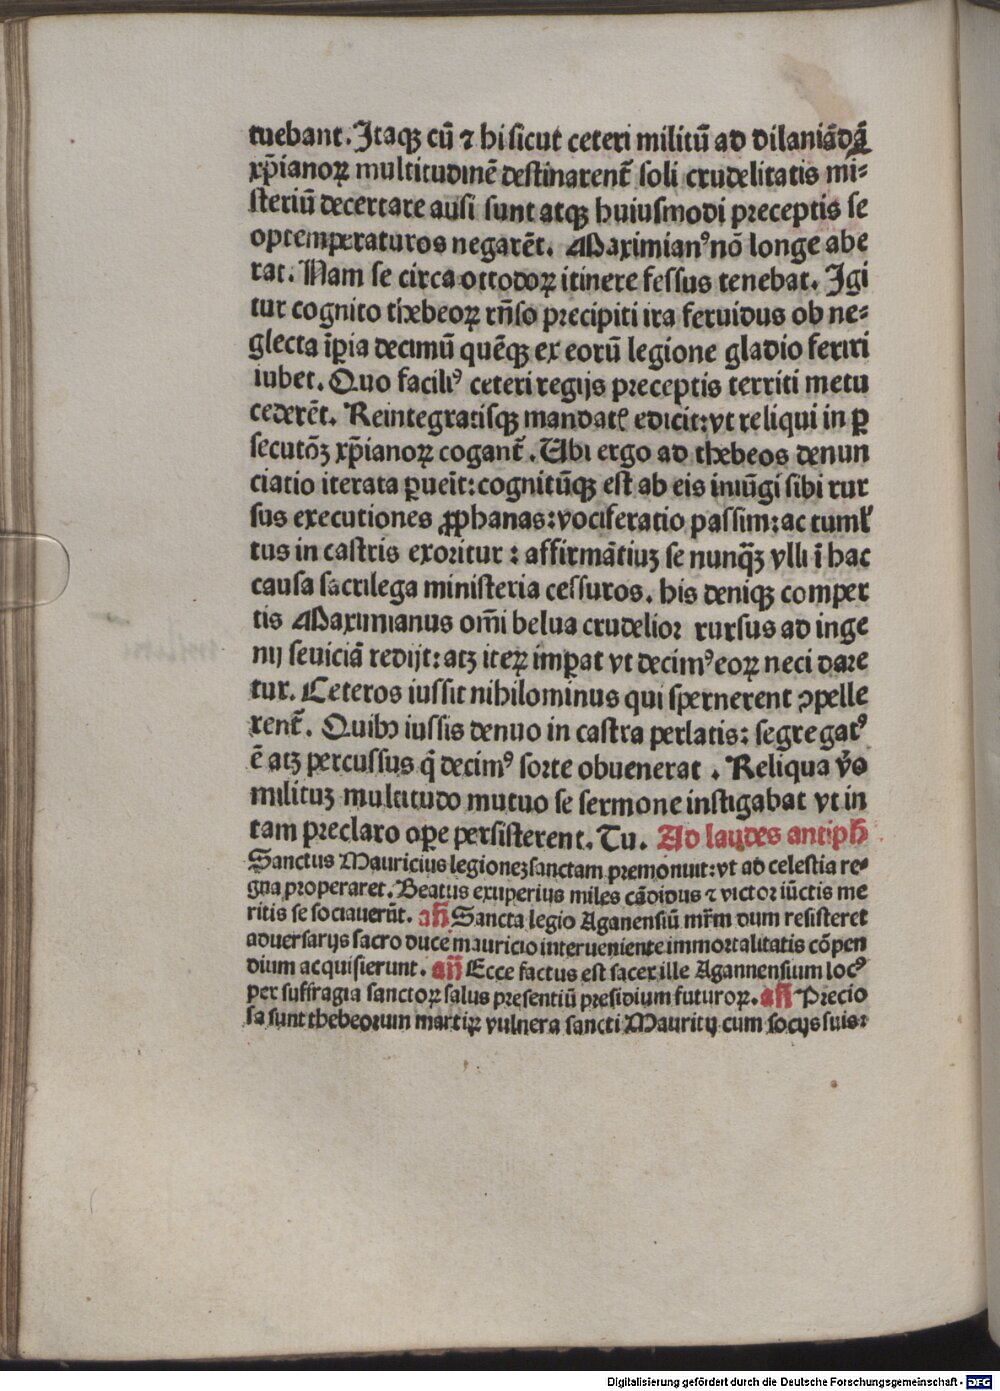 tuebant. Itaqꝫ cū ⁊ hi sicut ceteri militū ad dilaniādā
xp̄ianoꝝ multitudinē destinarent̄ soli crudelitatis mi⸗
steriū decertare ausi sunt atqꝫ huiusmodi preceptis se
optemperaturos negarēt. Maximianꝰ nō longe abe
rat. Nam se circa ottodoꝝ itinere fessus tenebat. Igi
tur cognito thebeoꝝ rn̄so precipiti ira feruidus ob ne⸗
glecta īꝑia decimū quēqꝫ ex eorū legione gladio feriri
iubet. Quo faciliꝰ ceteri regijs preceptis territi metu
cederēt. Reintegratisqꝫ mandatꝭ edicit: vt reliqui in ꝑ
secutōꝫ xp̄ianoꝝ cogant̄. Ubi ergo ad thebeos denun
ciatio iterata ꝑueīt: cognitūqꝫ est ab eis iniūgi sibi rur
sus executiones ꝓphanas: vociferatio passim: ac tuml̄
tus in castris exoritur: affirmātiuꝫ se nunqꝫ̄ vlli ī hac
causa sacrilega ministeria cessuros. his deniqꝫ comper
tis Maximianus om̄i belua crudelior rursus ad inge
nij seuiciā redijt: atꝫ iteꝝ imꝑat vt decimꝰ eoꝝ neci dare
tur. Ceteros iussit nihilominus qui spernerent ꝯpelle
rent̄. Quibꝫ iussis denuo in castra perlatis: segregatꝰ
ē atꝫ percussus q̄ decimꝰ sorte obuenerat. Reliqua v̄o
milituꝫ multitudo mutuo se sermone instigabat vt in
tam preclaro oꝑe persisterent. Tu. Ad laudes antiph
Sanctus Mauricius legioneꝫ sanctam premonuit: vt ad celestia re⸗
gna properaret. Beatus exuperius miles cādidus ⁊ victor iūctis me
ritis se sociauerūt. an̄ Sancta legio Aganensiū mr̄m dum resisteret
aduersarijs sacro duce mauricio interueniente immortalitatis cōpen
dium acquisierunt. an̄ Ecce factus est sacer ille Agannensium locꝰ
per suffragia sanctoꝝ salus presentiū presidium futuroꝝ. an̄ Precio
sa sunt thebeorum martiꝝ vulnera sancti Mauritij cum socijs suis:
Digitalisierung gefördert durch die Deutsche Forschungsgemeinschaft - DFG